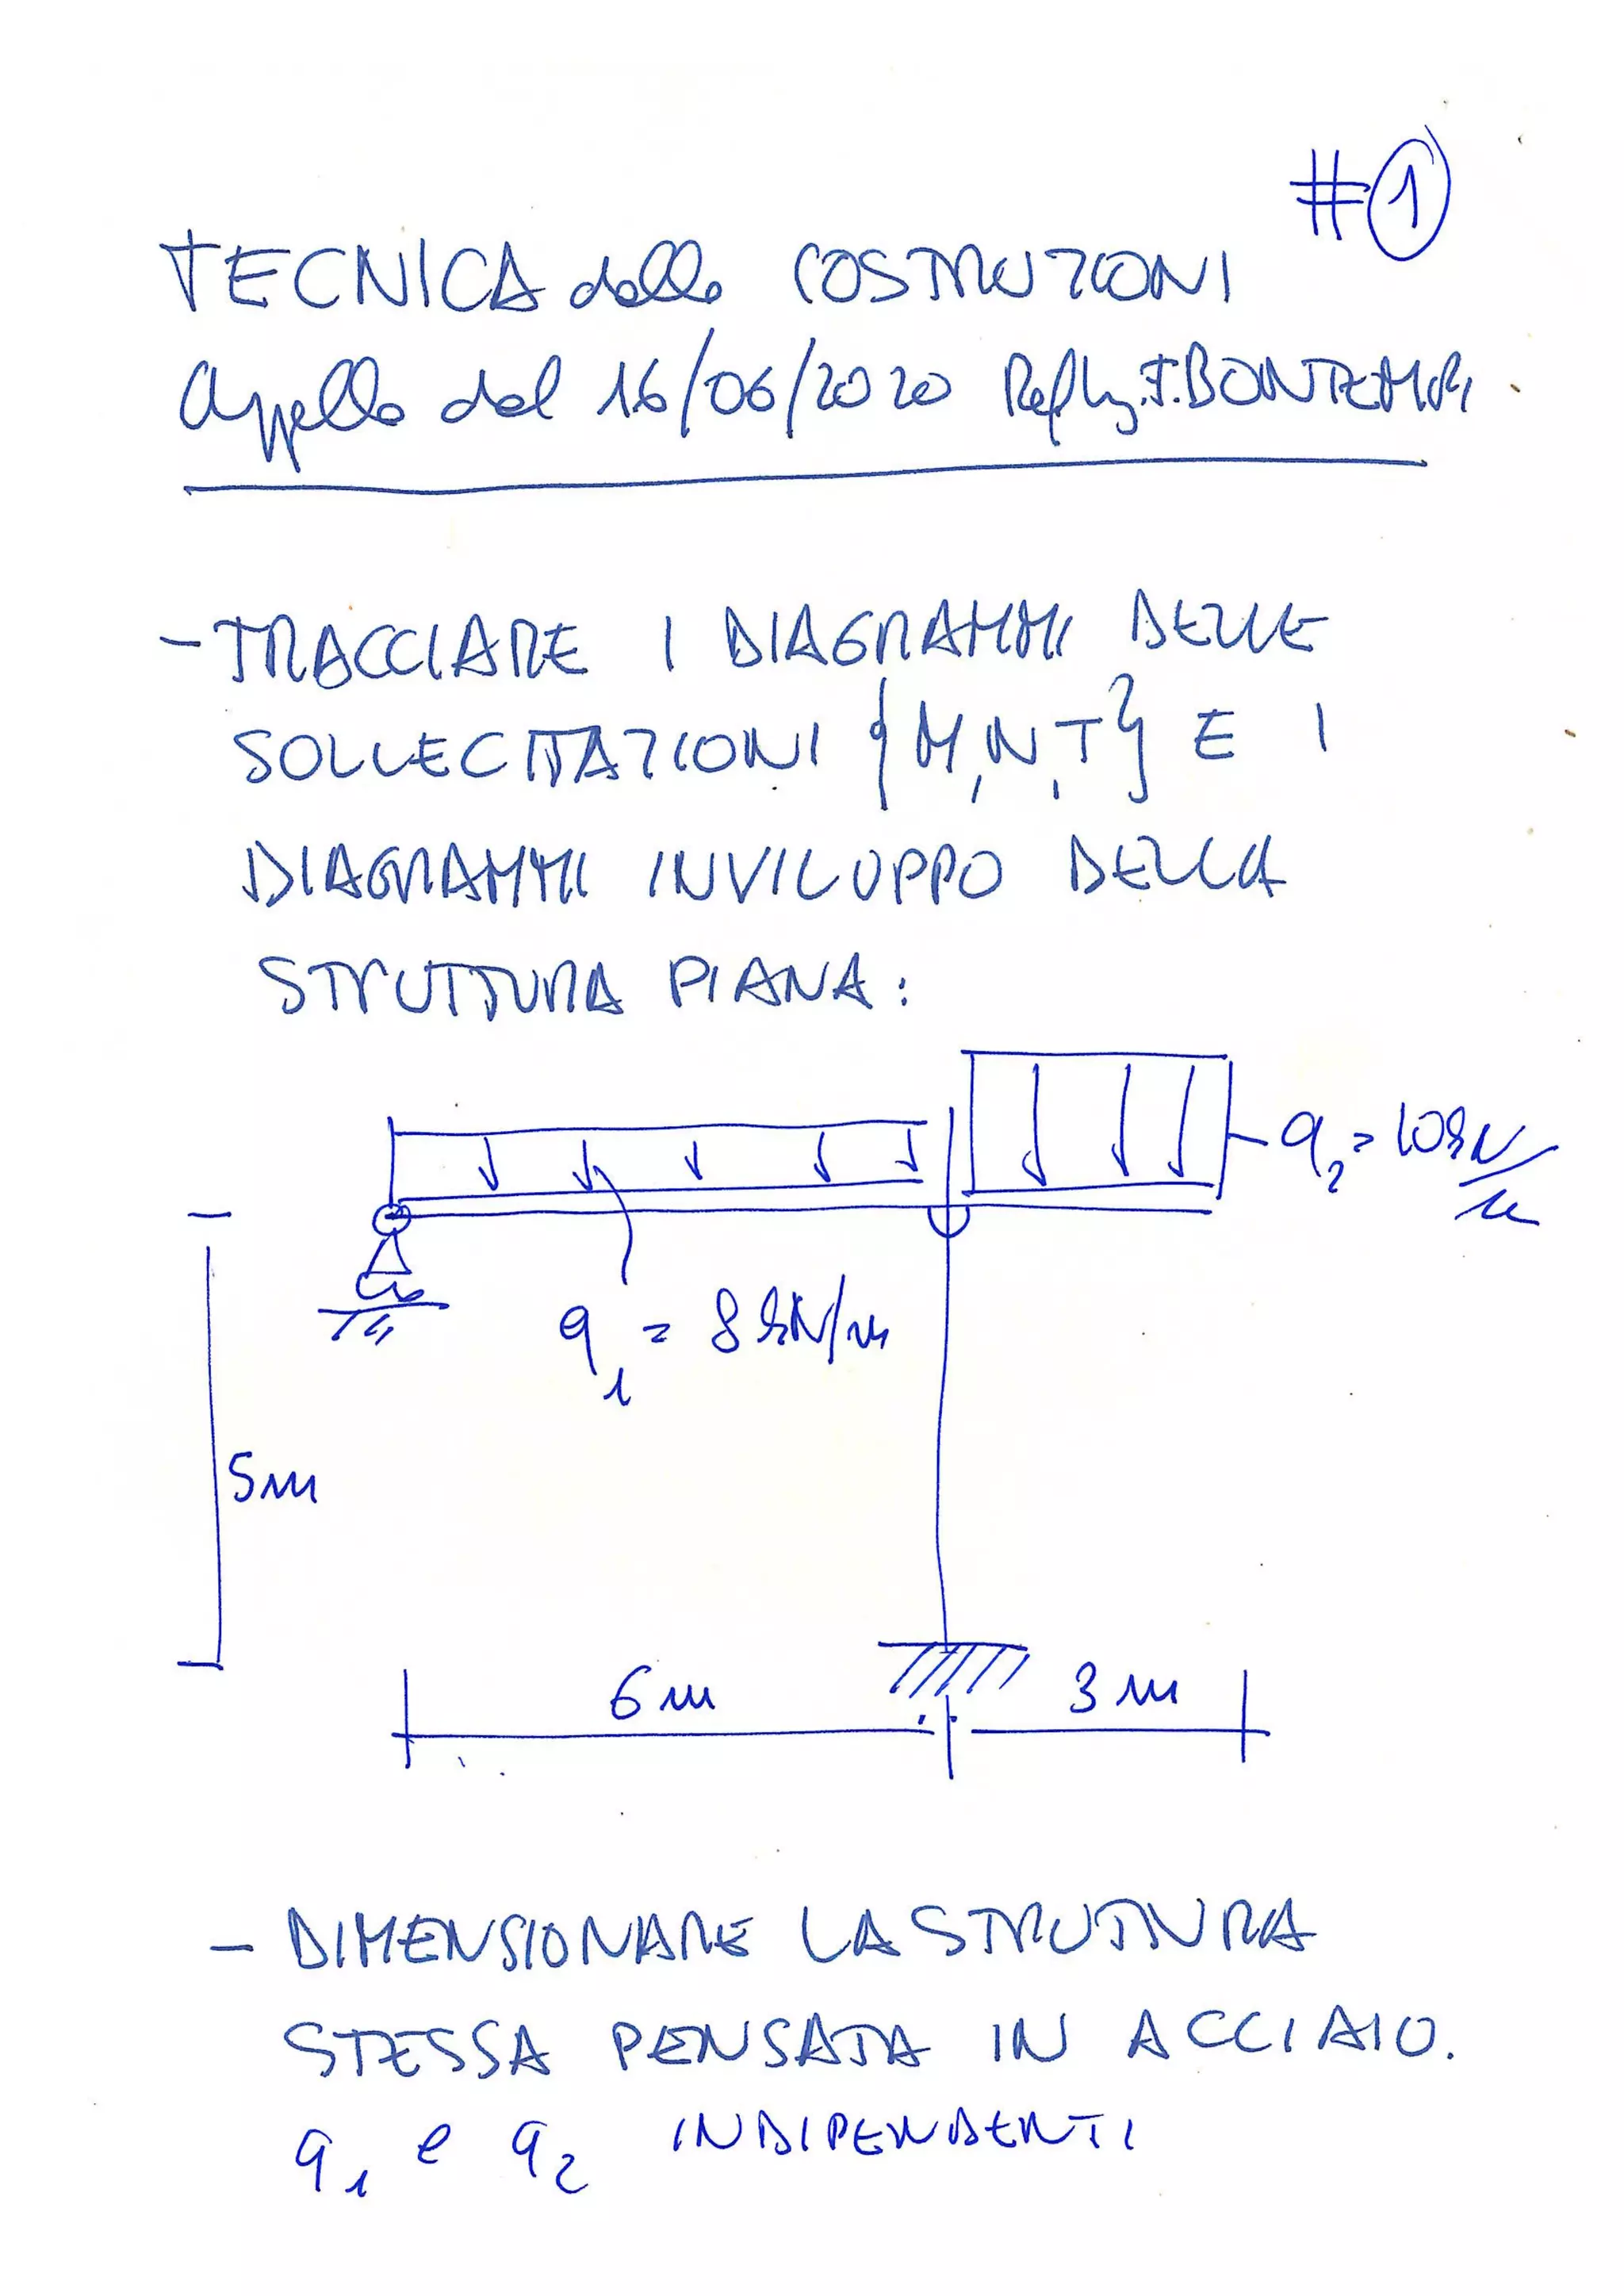 #1
TECNICA delle COSTRUZIONI
Appello del 16/06/2020 Prof. Ing. F. BONTEMPI
- TRACCIARE I DIAGRAMMI DELLE
SOLLECITAZIONI {M,N,T} E I
DIAGRAMMI INVILUPPO DELLA
STRUTTURA PIANA:
q2 = 10 kN/m
q1 = 8 kN/m
5m
6m
3m
- DIMENSIONARE LA STRUTTURA
STESSA PENSATA IN ACCIAIO.
q1 e q2 INDIPENDENTI